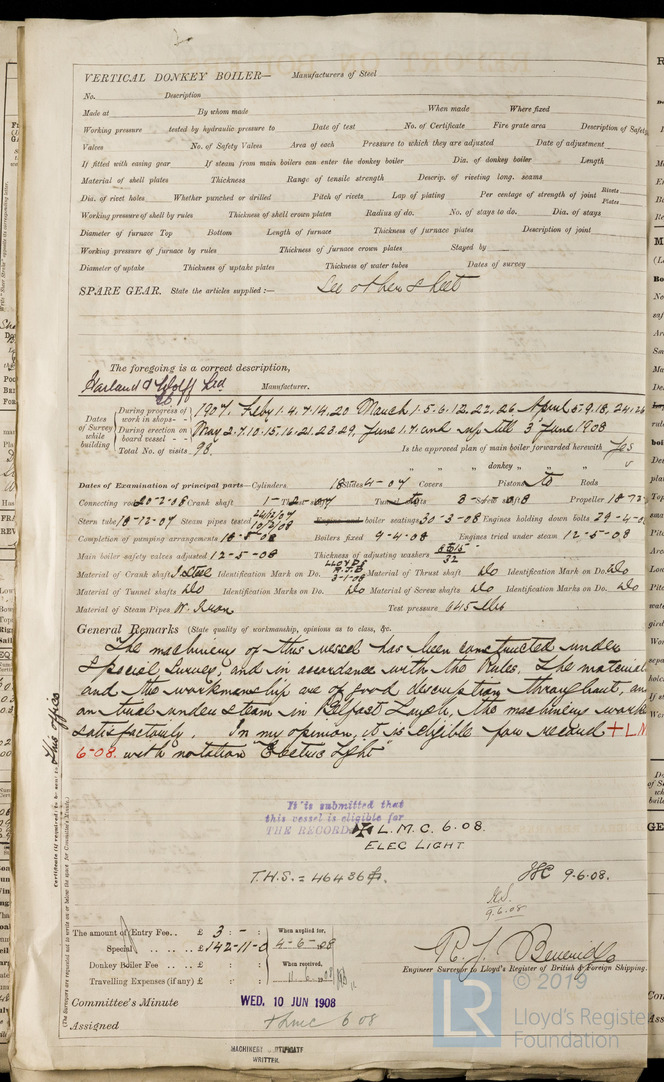 VERTICAL DONKEY BOILER— Manufacturers of Steel
No. Description
Made at By whom made When made Where fixed
Working pressure tested by hydraulic pressure to Date of test No. of Certificate Fire grate area Description of Safety
Valves No. of Safety Valves Area of each Pressure to which they are adjusted Date of adjustment
If fitted with easing gear If steam from main boilers can enter the donkey boiler Dia. of donkey boiler Length
Material of shell plates Thickness Range of tensile strength Descrip. of riveting long. seams
Dia. of rivet holes Whether punched or drilled Pitch of rivets Lap of plating Per centage of strength of joint Rivets Plates
Working pressure of shell by rules Thickness of shell crown plates Radius of do. No. of stays to do. Dia. of stays
Diameter of furnace Top Bottom Length of furnace Thickness of furnace plates Description of joint
Working pressure of furnace by rules Thickness of furnace crown plates Stayed by
Diameter of uptake Thickness of uptake plates Thickness of water tubes Dates of survey
SPARE GEAR. State the articles supplied :— See other sheet
The foregoing is a correct description,
Harland & Wolff Ltd Manufacturer.
Dates of Survey while building
During progress of work in shops- - 1907. Feby 1. 4. 7. 14. 20 March 1. 5. 6. 12. 22. 26 April 5. 9. 18. 24. 26
During erection on board vessel - - May 2. 7. 10. 15. 16. 21. 23. 29. June 1. 7. and up till 3rd June 1908
Total No. of visits 98. Is the approved plan of main boiler forwarded herewith Yes
" " " donkey " "
Dates of Examination of principal parts—Cylinders Slides Covers Pistons Rods
Connecting rods 20-2-08 Crank shaft Thrust shaft Tunnel shafts Screw shaft Propeller
Stern tube 18-12-07 Steam pipes tested 24/12/07 10/2/08 Engine and boiler seatings 30-3-08 Engines holding down bolts
Completion of pumping arrangements 18-5-08 Boilers fixed 9-4-08 Engines tried under steam 12-5-08
Main boiler safety valves adjusted 12-5-08 Thickness of adjusting washers
Material of Crank shaft I. Steel Identification Mark on Do. LLOYDS R.J.B 3-1-08 Material of Thrust shaft do Identification Mark on Do. do
Material of Tunnel shafts do Identification Marks on Do. do Material of Screw shafts do Identification Marks on Do. do
Material of Steam Pipes W. Iron Test pressure 645 lbs
General Remarks (State quality of workmanship, opinions as to class, &c.
The machinery of this vessel has been constructed under
Special Survey, and in accordance with the Rules. The material
and the workmanship are of good description throughout, and
on trial under steam in Belfast Lough, the machinery worked
satisfactorily. In my opinion, it is eligible for record + L M
6-08. with notation "Electric Light"
It is submitted that
this vessel is eligible for
THE RECORD L.M.C. 6.08.
ELEC LIGHT
T.H.S. = 46436
9.6.08.
9.6.08
The amount of Entry Fee.. £ 3 : - : When applied for,
Special .. .. .. £ 142-11-0 4-6-08
Donkey Boiler Fee .. .. £ : : When received,
Travelling Expenses (if any) £ : : 11.6.08
Engineer Surveyor to Lloyd's Register of British & Foreign Shipping.
Committee's Minute WED. 10 JUN 1908
Assigned + LMC 6 08
MACHINERY CERTIFICATE
WRITTEN.
Certificate (if required) to be sent to this office
(The Surveyors are requested not to write on or below the space for Committee's Minute.)
© 2019
LR
Lloyd's Register
Foundation